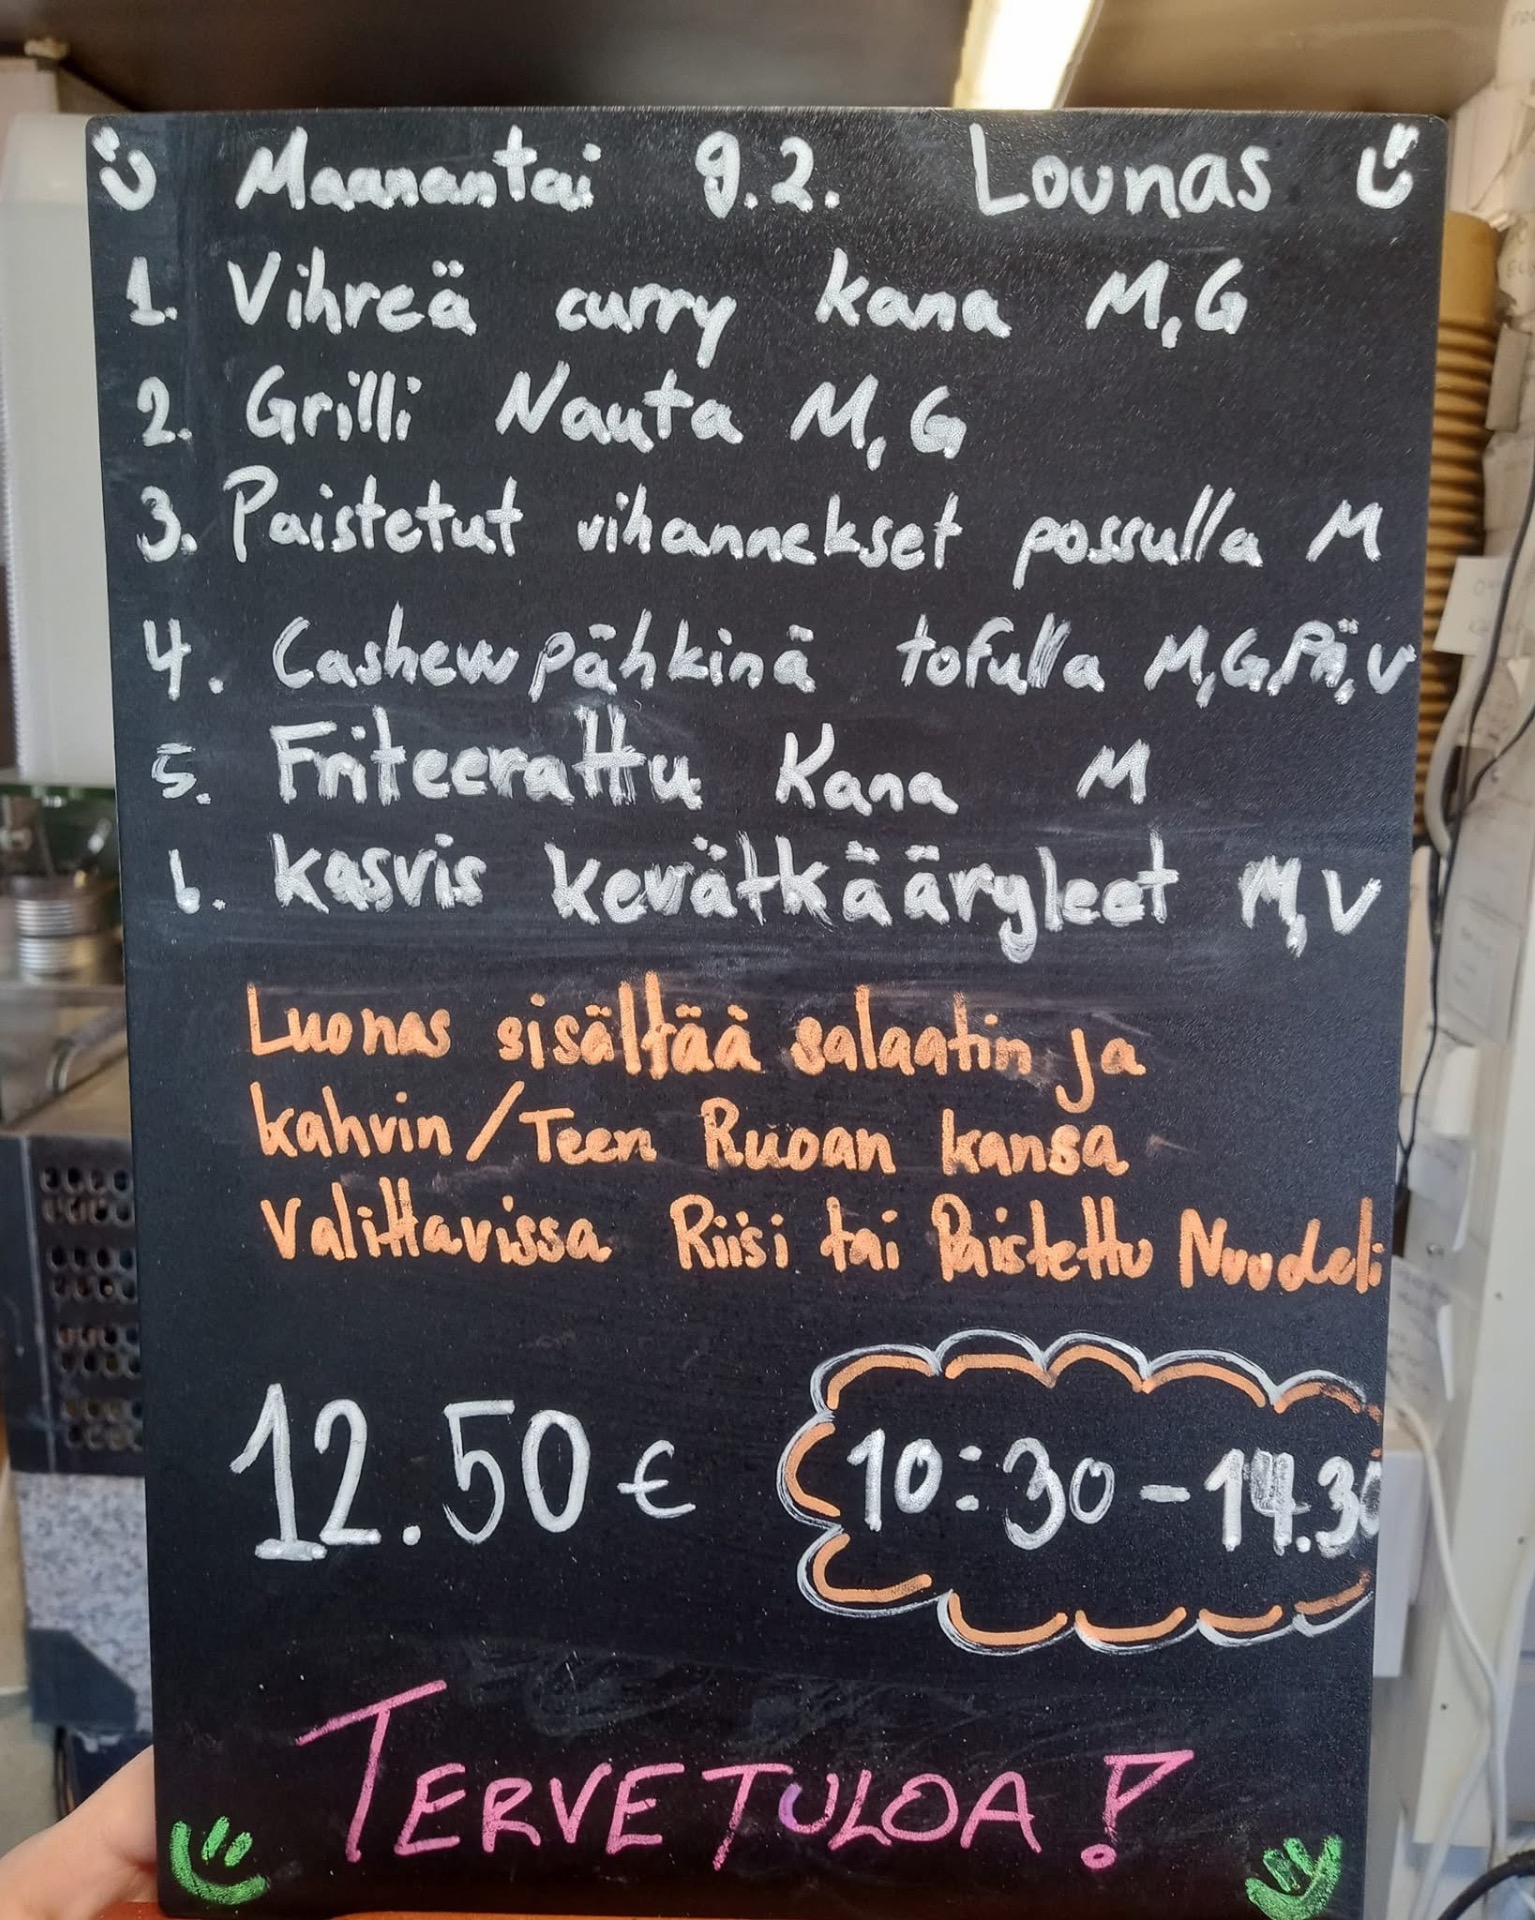 Maanantai 9.2. Lounas
1. Vihreä curry kana M,G
2. Grilli Nauta M,G
3. Paistetut vihannekset possulla M
4. Cashewpähkinä tofulla M,G,Pä,V
5. Friteerattu Kana M
6. kasvis kevätkääryleet M,V
Luonas sisältää salaatin ja
kahvin/Teen Ruoan kansa
Valittavissa Riisi tai Paistettu Nuudeli
12.50€
10:30-14.30
TERVETULOA!